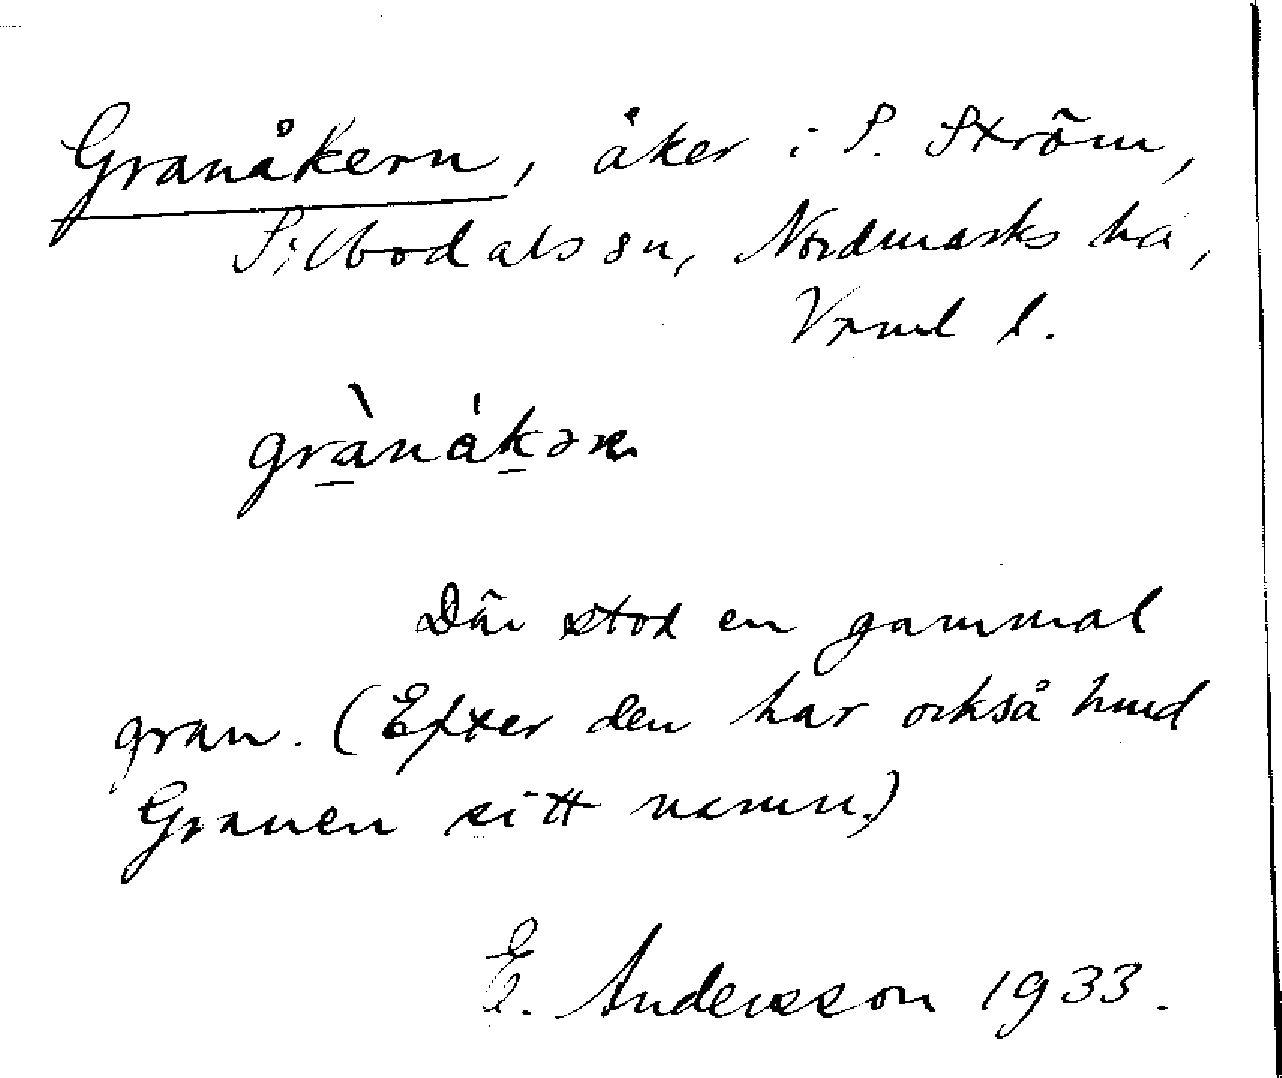 Granåkern, åker i S. Ström,
Silbodals sn, Nordmarks hd,
Vrml l.
grànåkəɳ
Där stod en gammal
gran. (Efter den har också hmd
Granen sitt namn.)
E. Andersson 1933.